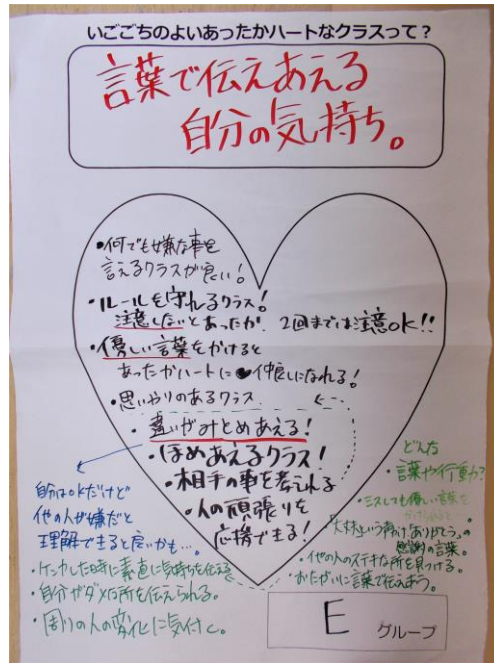 いごこちのよいあったかハートなクラスって？
言葉で伝えあえる
自分の気持ち。
・何でも嫌な事を
言えるクラスが良い！
・ルールを守れるクラス！
注意しないとあったか! 2回までは注意OK!!
・優しい言葉をかけると
あったかハートに 仲良しになれる！
・思いやりのあるクラス
・違いがみとめあえる！
・ほめあえるクラス！
・相手の事を考える
・人の頑張りを
応援できる！
自分はOKだけど
他の人が嫌だと
理解できると良いかも…。
・ケンカした時に素直に気持ちを伝える
・自分がダメな所を伝えられる。
・周りの人の変化に気付く。
どんな
・言葉や行動？
・ミスしても優しい言葉を
「大丈夫」という声かけ「ありがとう」の
感謝の言葉。
・他の人のステキな所を見つける。
・おたがいに言葉で伝えあう。
E グループ